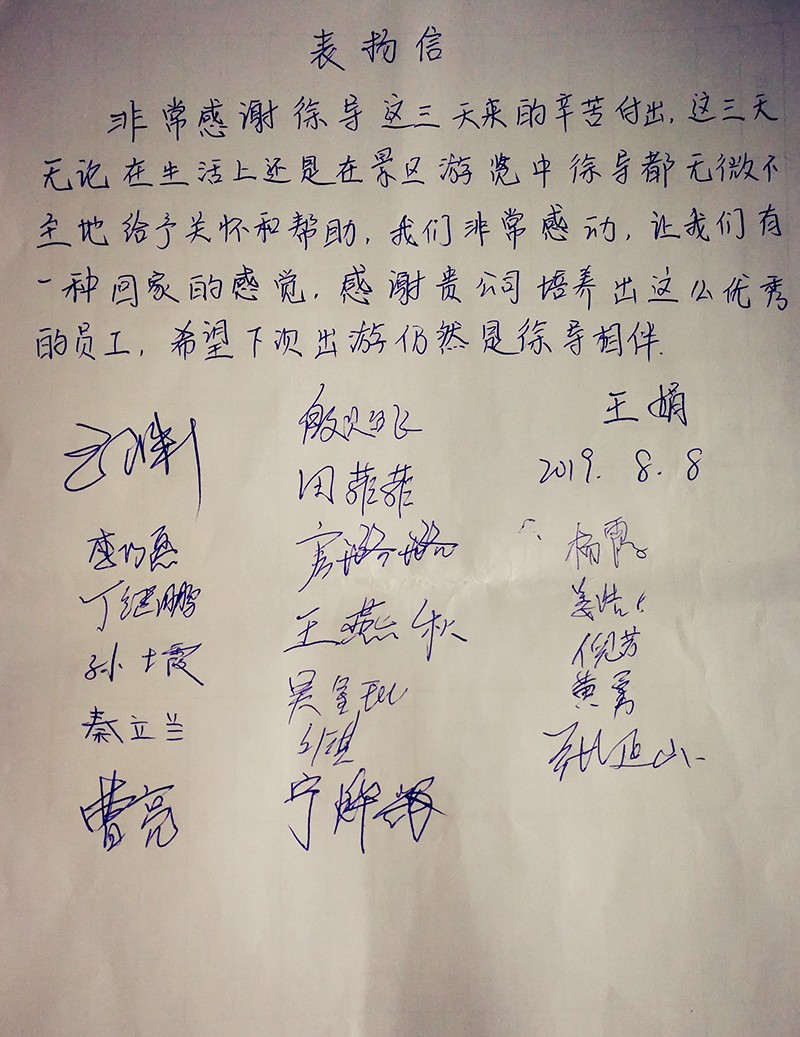 表扬信
非常感谢徐导这三天来的辛苦付出,这三天
无论在生活上还是在景区游览中徐导都无微不
至地给予关怀和帮助,我们非常感动,让我们有
一种回家的感觉,感谢贵公司培养出这么优秀
的员工,希望下次出游仍然是徐导相伴.
王娟
2019. 8. 8
田菲菲
丁继鹏
孙士霞
秦立兰
曹亮
王燕秋
杨霞
姜浩
倪芳
黄勇